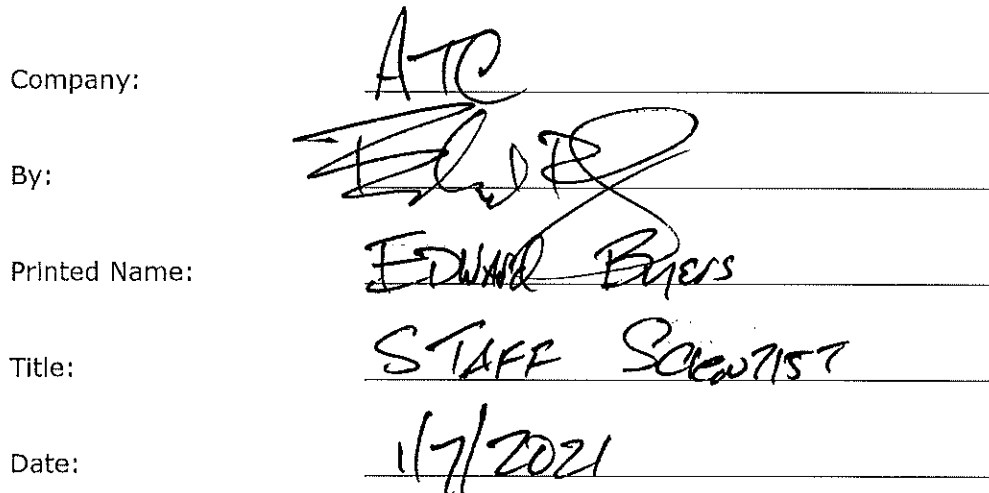 Company: ATC
By:
Printed Name: EDWARD Byers
Title: STAFF SCIENTIST
Date: 1/7/2021